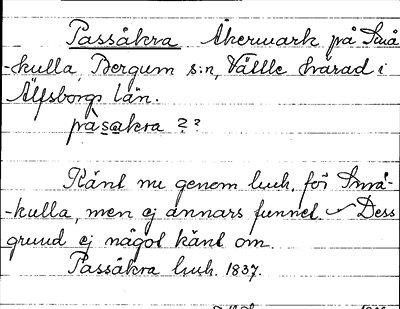 Passåkra Åkermark på Små
-kulla, Bergum s:n, Vättle härad i
Älfsborgs län.
pàsakra ??
Känt nu genom luuk. för Små-
-kulla, men ej annars funnet. Dess
grund ej något känt om.
Passåkra luuk. 1837.